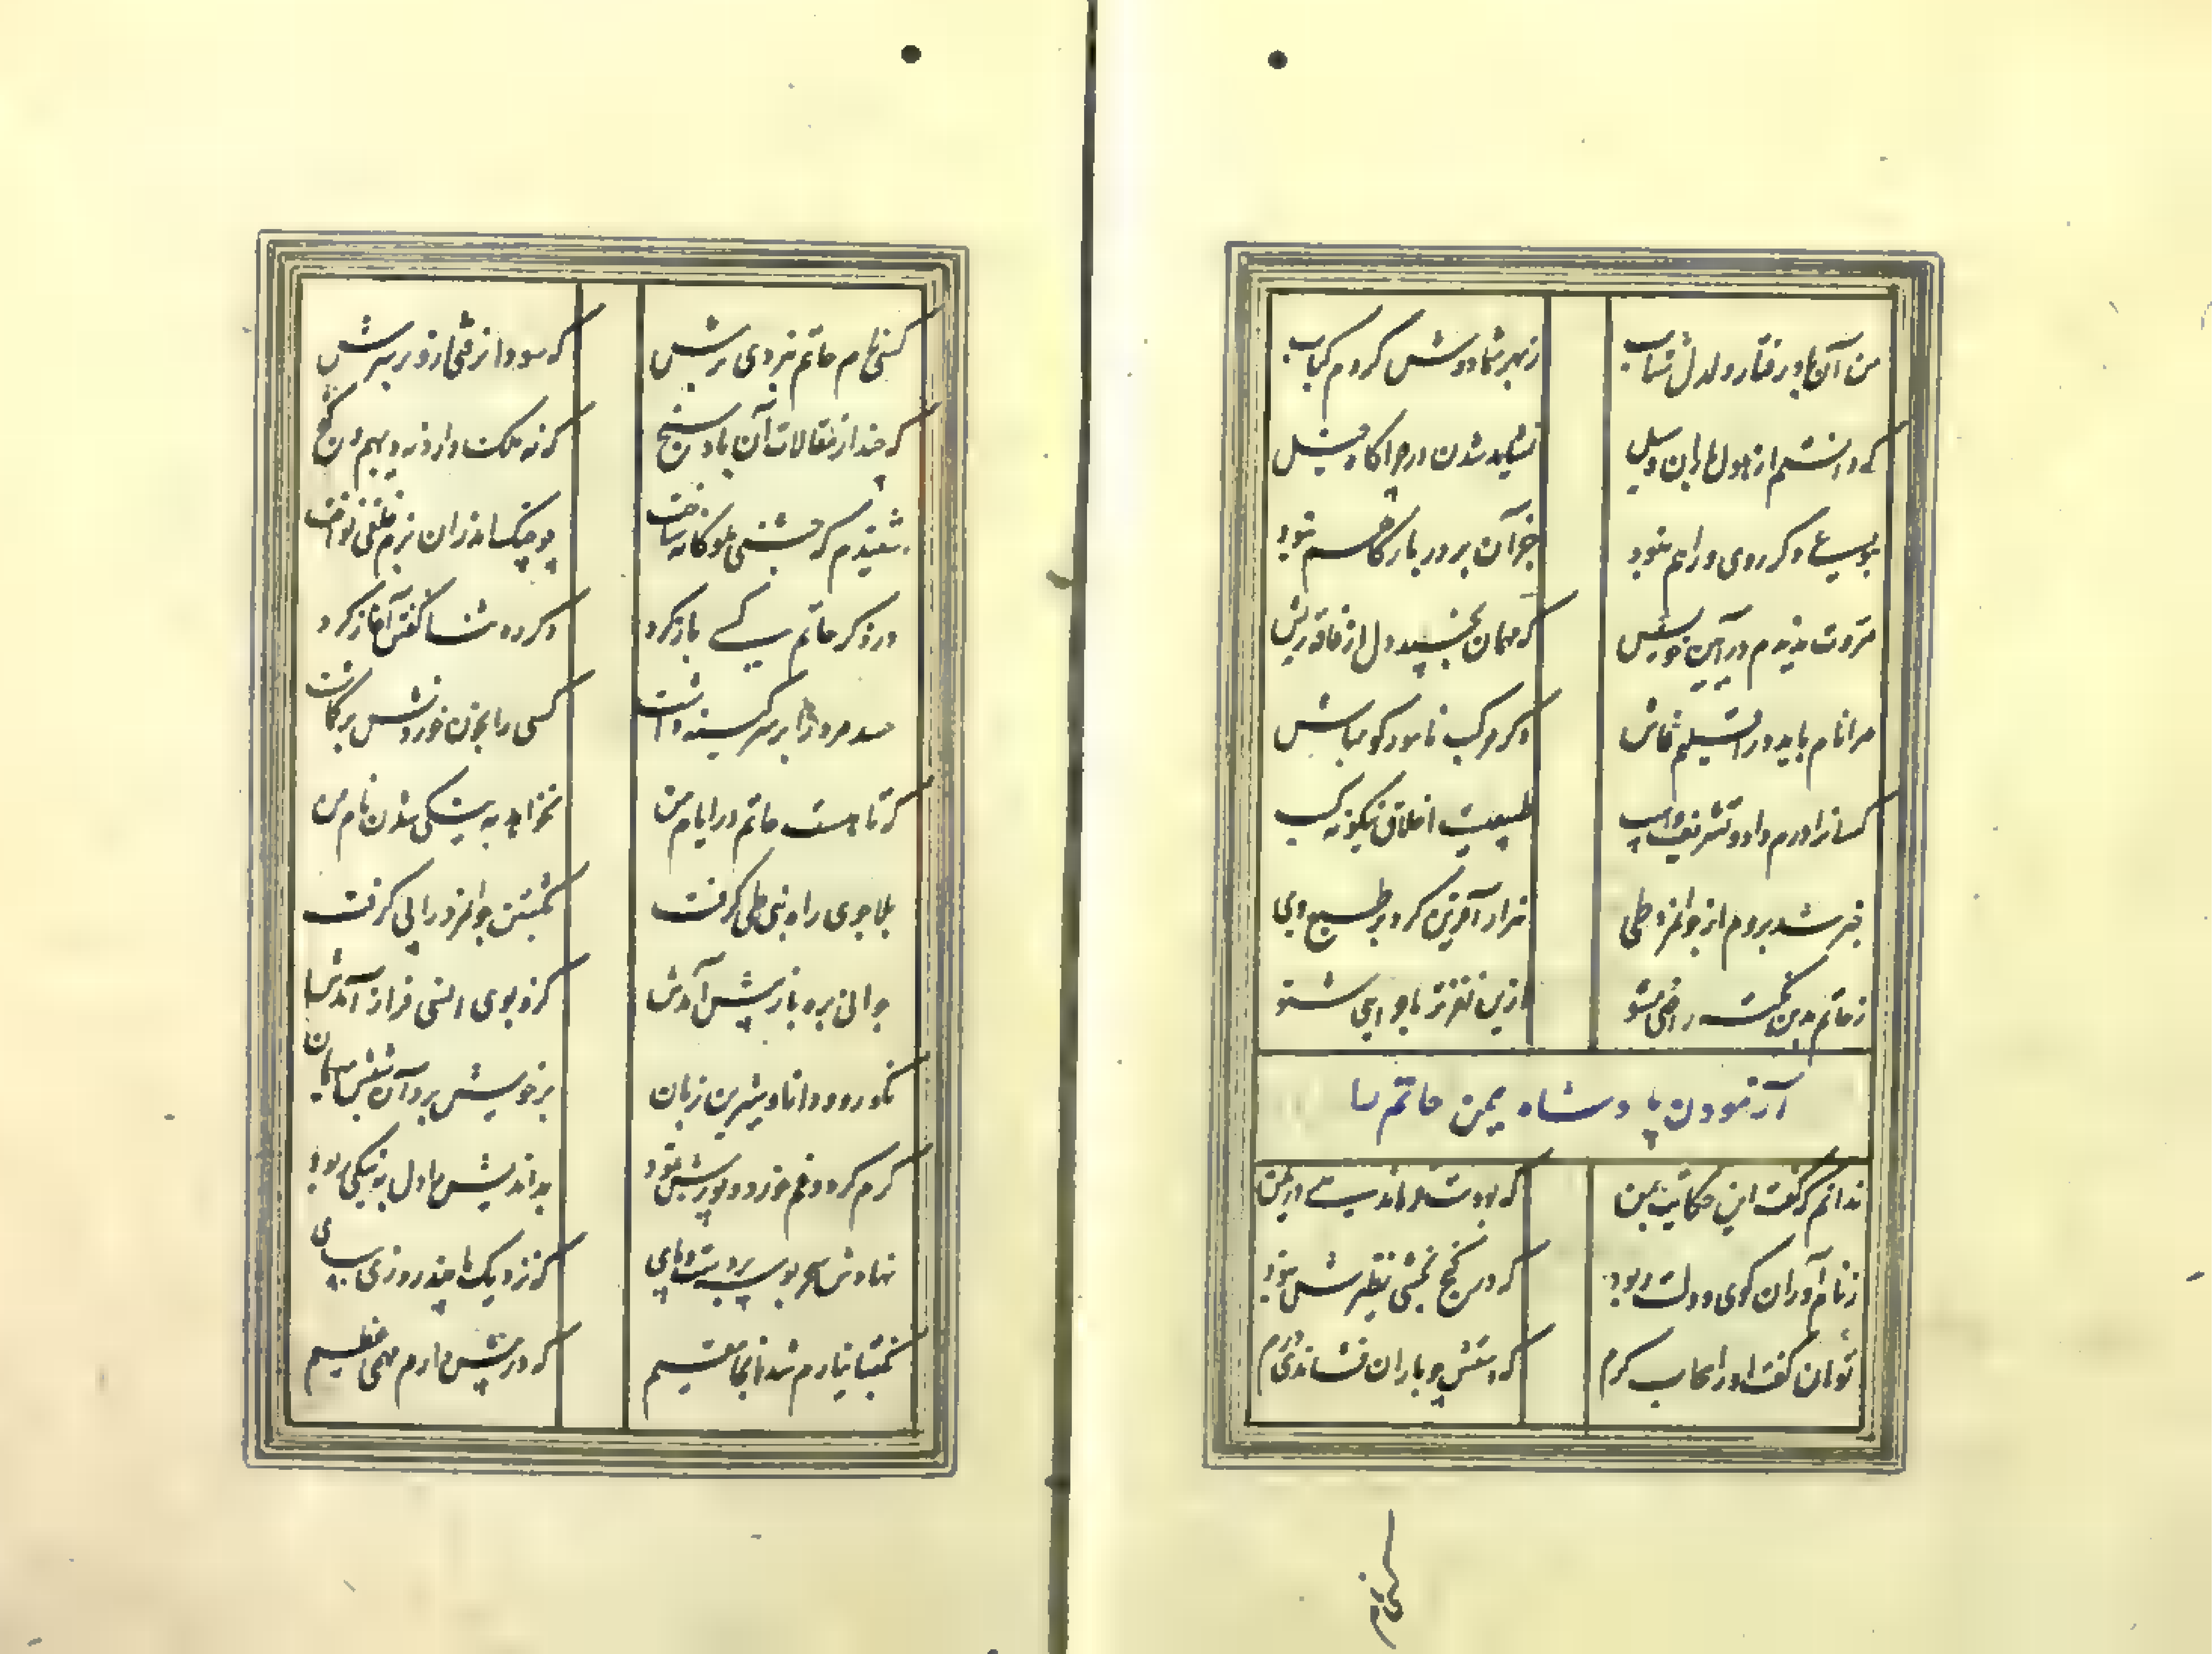 من آن باد رفتار دلدل شتاب زبهر شما دوش کردم کباب
که دانستم از هول باران و سیل نشاید شدن در چراگاه خیل
بنوعی دگر روی و راهم نبود جز آن بر در بارگاهم نبود
مروت ندیدم در آیین خویش که مهمان بخسپد دل از فاقه ریش
مرا نام باید در اقلیم فاش دگر مرکب نامور گو مباش
کسانرا درم داد و تشریف و اسپ طبیعیست اخلاق نیکو نه کسب
خبر شد بروم از جوانمرد طی هزار آفرین کرد بر طبع وی
ز حاتم بدین نکته راضی مشو ازین نغزتر ماجرایی شنو
آزمودن پادشاه یمن حاتم را
ندانم که گفت این حکایت بمن که بودست فرماندهی در یمن
ز نام آوران گوی دولت ربود که در گنج بخشی نظیرش نبود
توان گفت او را سحاب کرم که دستش چو باران فشاندی درم
کسی نام
کسی نام حاتم نبردی برش که سودا نرفتی ازو بر سرش
که چند از مقالات آن باد سنج که نه ملک دارد نه دیهیم نه گنج
شنیدم که جشنی ملوکانه ساخت چو چنگ اندران بزم خلقی نواخت
در ذکر حاتم کسی باز کرد دگر کس ثنا گفتن آغاز کرد
حسد مرد را بر سر کینه داشت کسی را بخون خوردنش بر گماشت
که تا هست حاتم در ایام من نخواهد به نیکی شدن نام من
بلا جوی راه بنی طی گرفت بکشتن جوانمرد را پی گرفت
جوانی بره باز پیش آمدش کزو بوی انسی فراز آمدش
نکو روی و دانا و شیرین زبان بر خویش برد آن شبش میهمان
کرم کرد و غم خورد و پوزش نمود بد اندیش را دل به نیکی ربود
نهادش سحر بوسه بر دست و پای که نزدیک ما چند روزی بپای
بگفتا نیارم شد اینجا مقیم که در پیش دارم مهمی عظیم